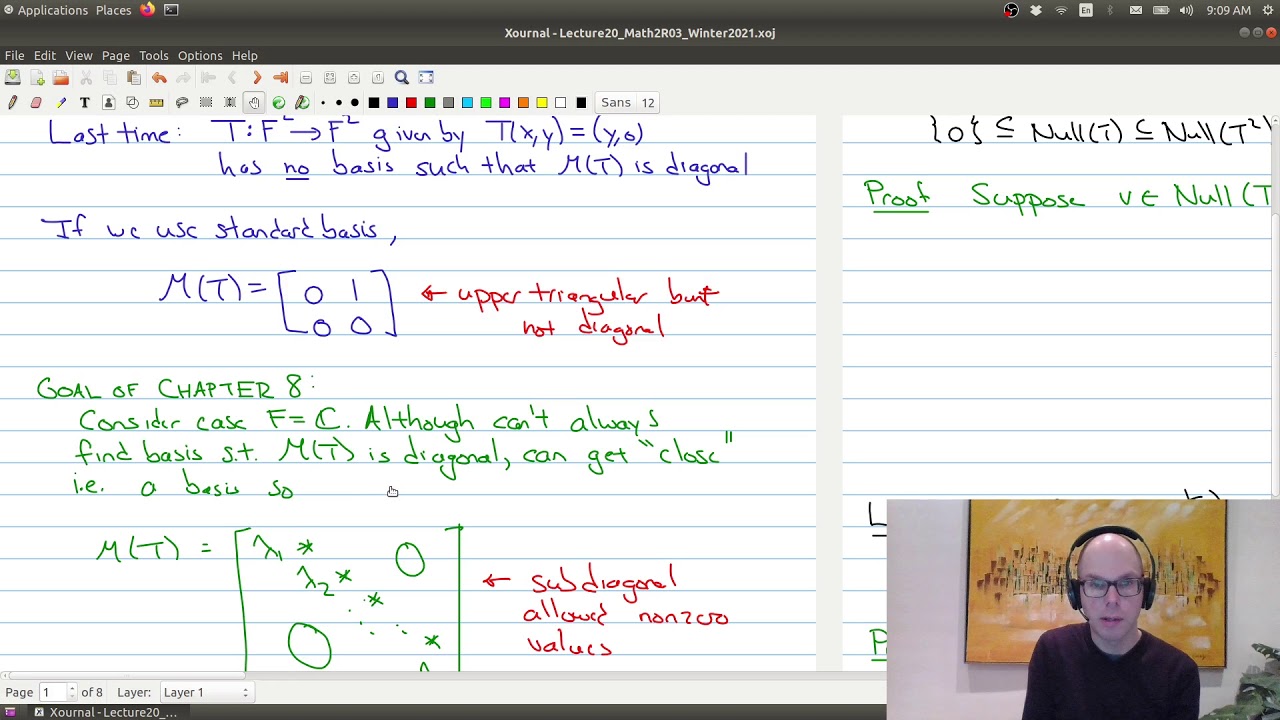 Applications Places 9:09 AM
En
Xournal - Lecture20_Math2R03_Winter2021.xoj
File Edit View Page Tools Options Help
Sans 12
Last time: T: F² → F² given by T(x,y) = (y,0)
has no basis such that M(T) is diagonal
If we use standard basis,
M(T) = [ 0 1
0 0 ]
← upper triangular but
not diagonal
GOAL OF CHAPTER 8:
Consider case F = C. Although can't always
find basis s.t. M(T) is diagonal, can get "close"
i.e. a basis so
M(T) = [ λ₁ * 0
λ₂ *
⋱ *
0 ⋱ *
← subdiagonal
allowed nonzero
values
{0} ⊆ Null(T) ⊆ Null(T²)
Proof Suppose v ∈ Null(T
Page 1 of 8 Layer: Layer 1
Xournal - Lecture20_...